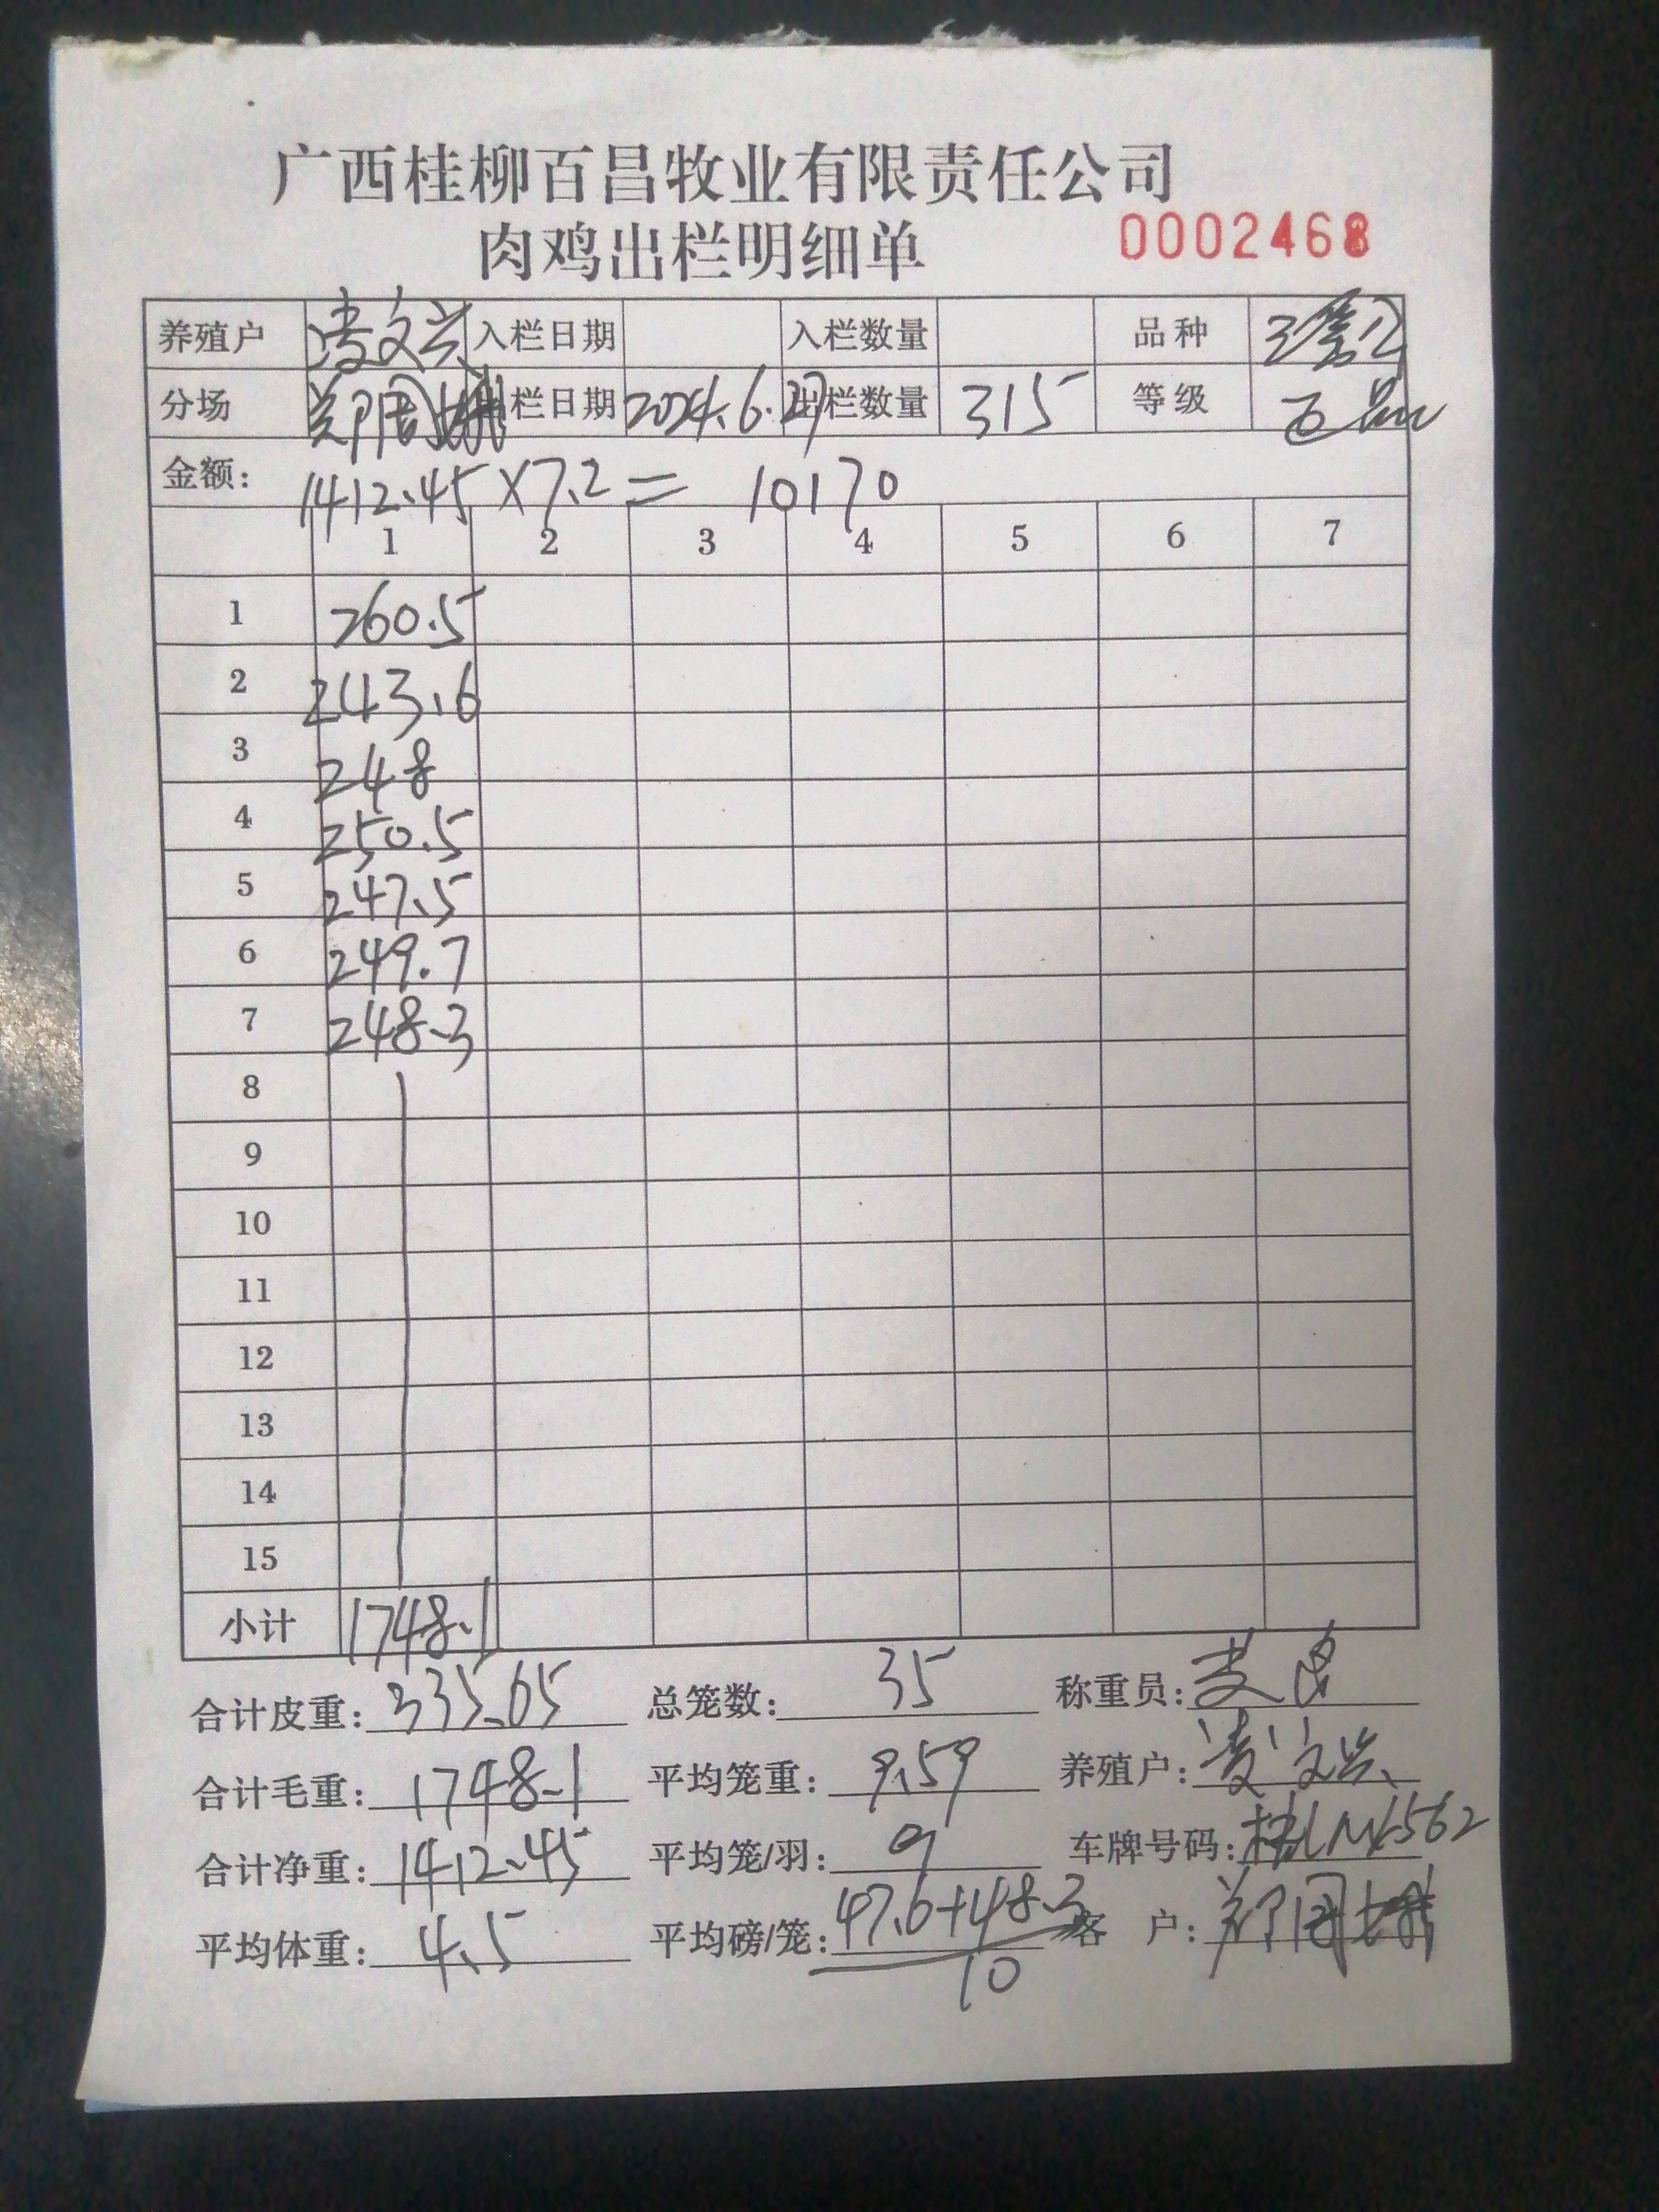 广西桂柳百昌牧业有限责任公司
肉鸡出栏明细单 0002468
养殖户 凌文兴 入栏日期 入栏数量 品种
分场 栏日期 2024.6.27 出栏数量 315 等级
金额: 1412.45×7.2= 10170
1 2 3 4 5 6 7
1 260.5
2 243.6
3 248
4 250.5
5 247.5
6 249.7
7 248.3
8
9
10
11
12
13
14
15
小计 1748.1
合计皮重: 335.65 总笼数: 35 称重员:
合计毛重: 1748.1 平均笼重: 9.59 养殖户: 凌文兴
合计净重: 1412.45 平均笼/羽: 9 车牌号码:
平均体重: 4.5 平均磅/笼: 47.6+48.3 客 户:
10